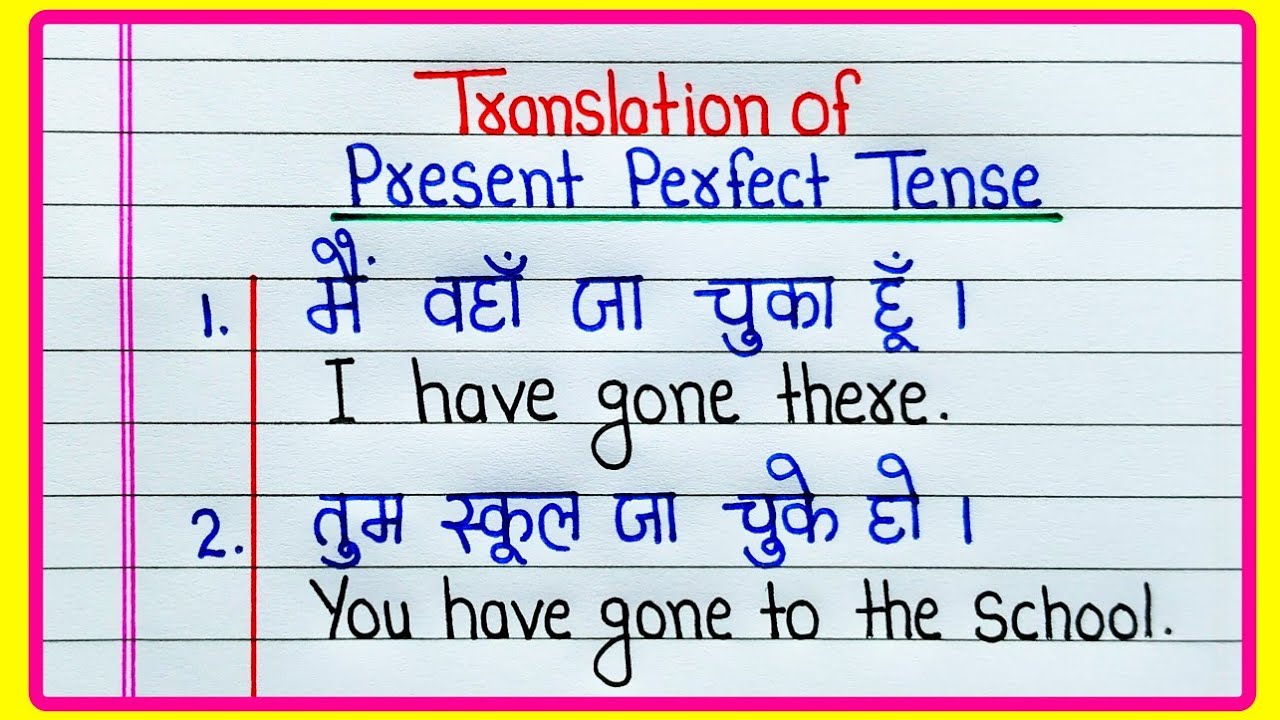 Translation of
Present Perfect Tense
1. मैं वहाँ जा चुका हूँ ।
I have gone there.
2. तुम स्कूल जा चुके हो ।
You have gone to the School.